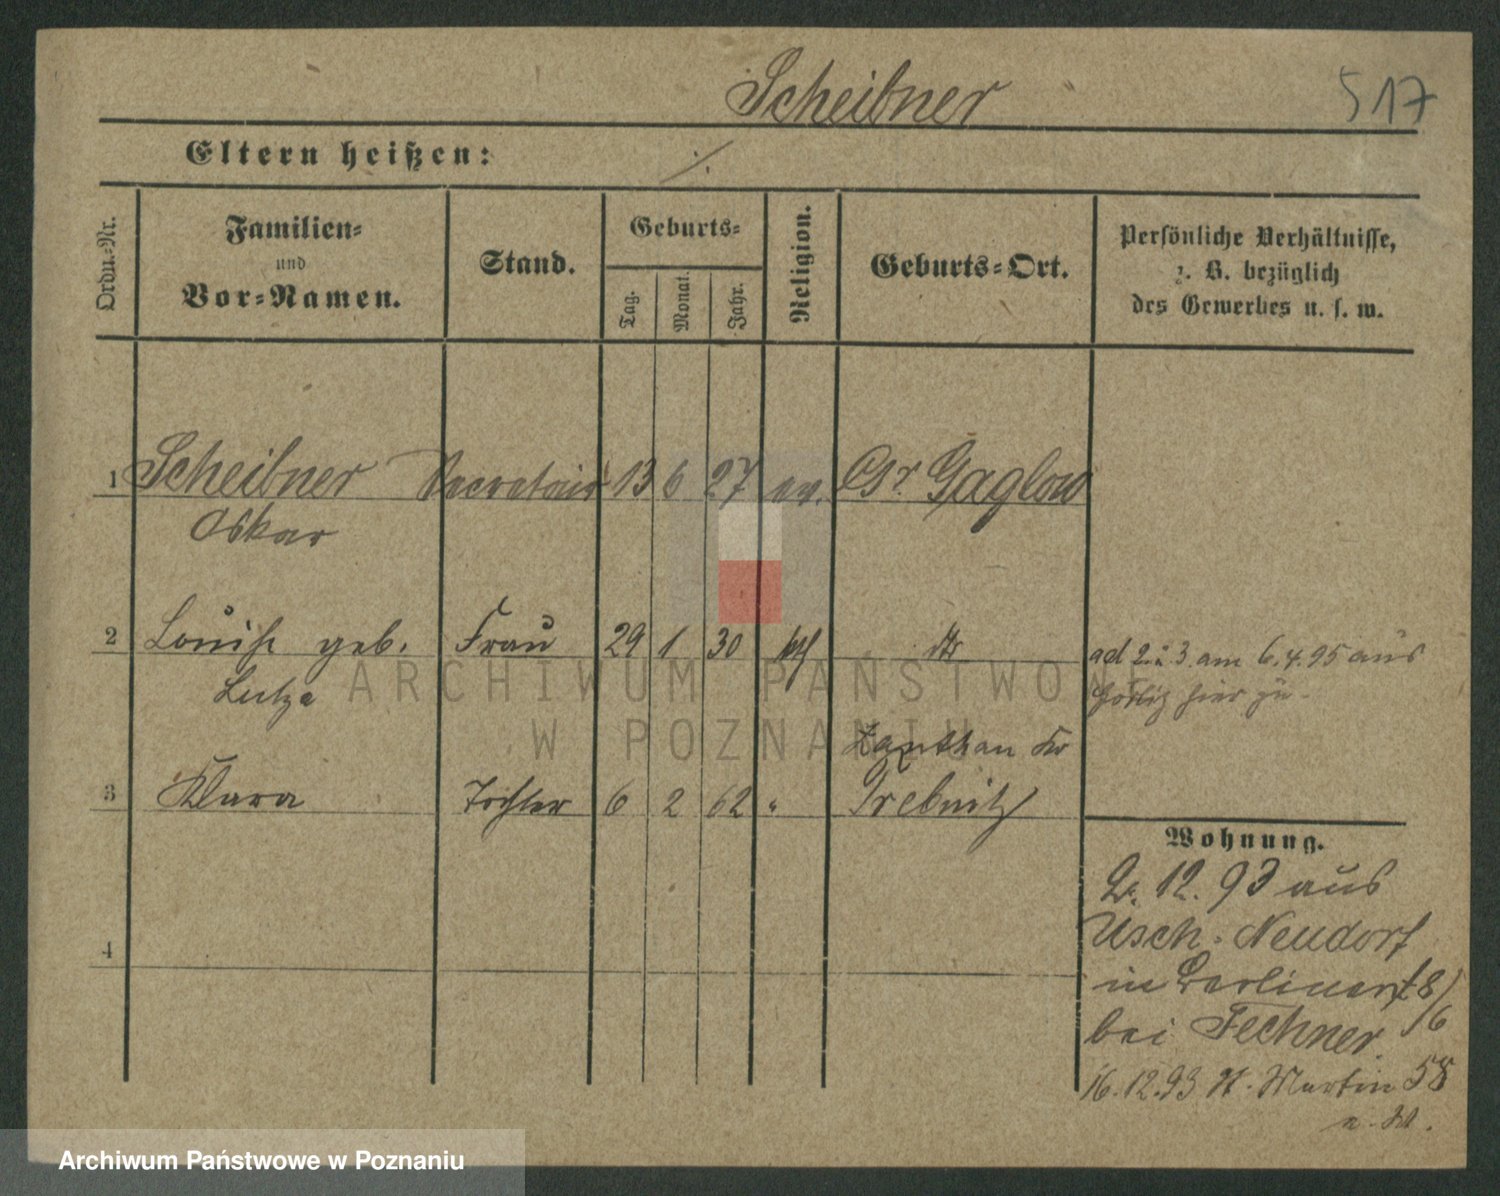 Scheibner
517
Eltern heißen: ./.
Ordn.-Nr.
Familien-
und
Vor-Namen.
Stand.
Geburts-
Tag.
Monat.
Jahr.
Religion.
Geburts-Ort.
Persönliche Verhältnisse,
z. B. bezüglich
des Gewerbes u. s. w.
1 Scheibner Secretair 13 6 27 ev. Gr. Gaglow
Oskar
2 Louise geb. Frau 29 1 30 kth
ad 2. u 3. am 6.4.95 aus
Görlitz hier zu
Kr
3 Klara Tochter 6 2 62 " Trebnitz
Wohnung.
2. 12. 93 aus
Usch-Neudorf
in Berlinerst 8/6
bei Fechner.
16.12.93 St. Martin 58
4
ARCHIWUM PAŃSTWOWE
W POZNANIU
Archiwum Państwowe w Poznaniu